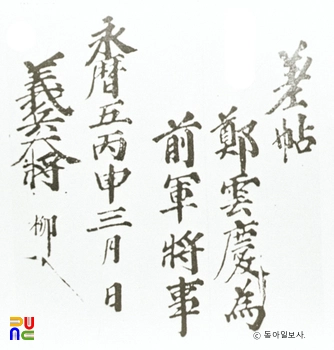 差帖
鄭雲慶為
前軍將事
永曆五丙申三月 日
義兵大將 柳
PUNC
ⓒ 동아일보사.